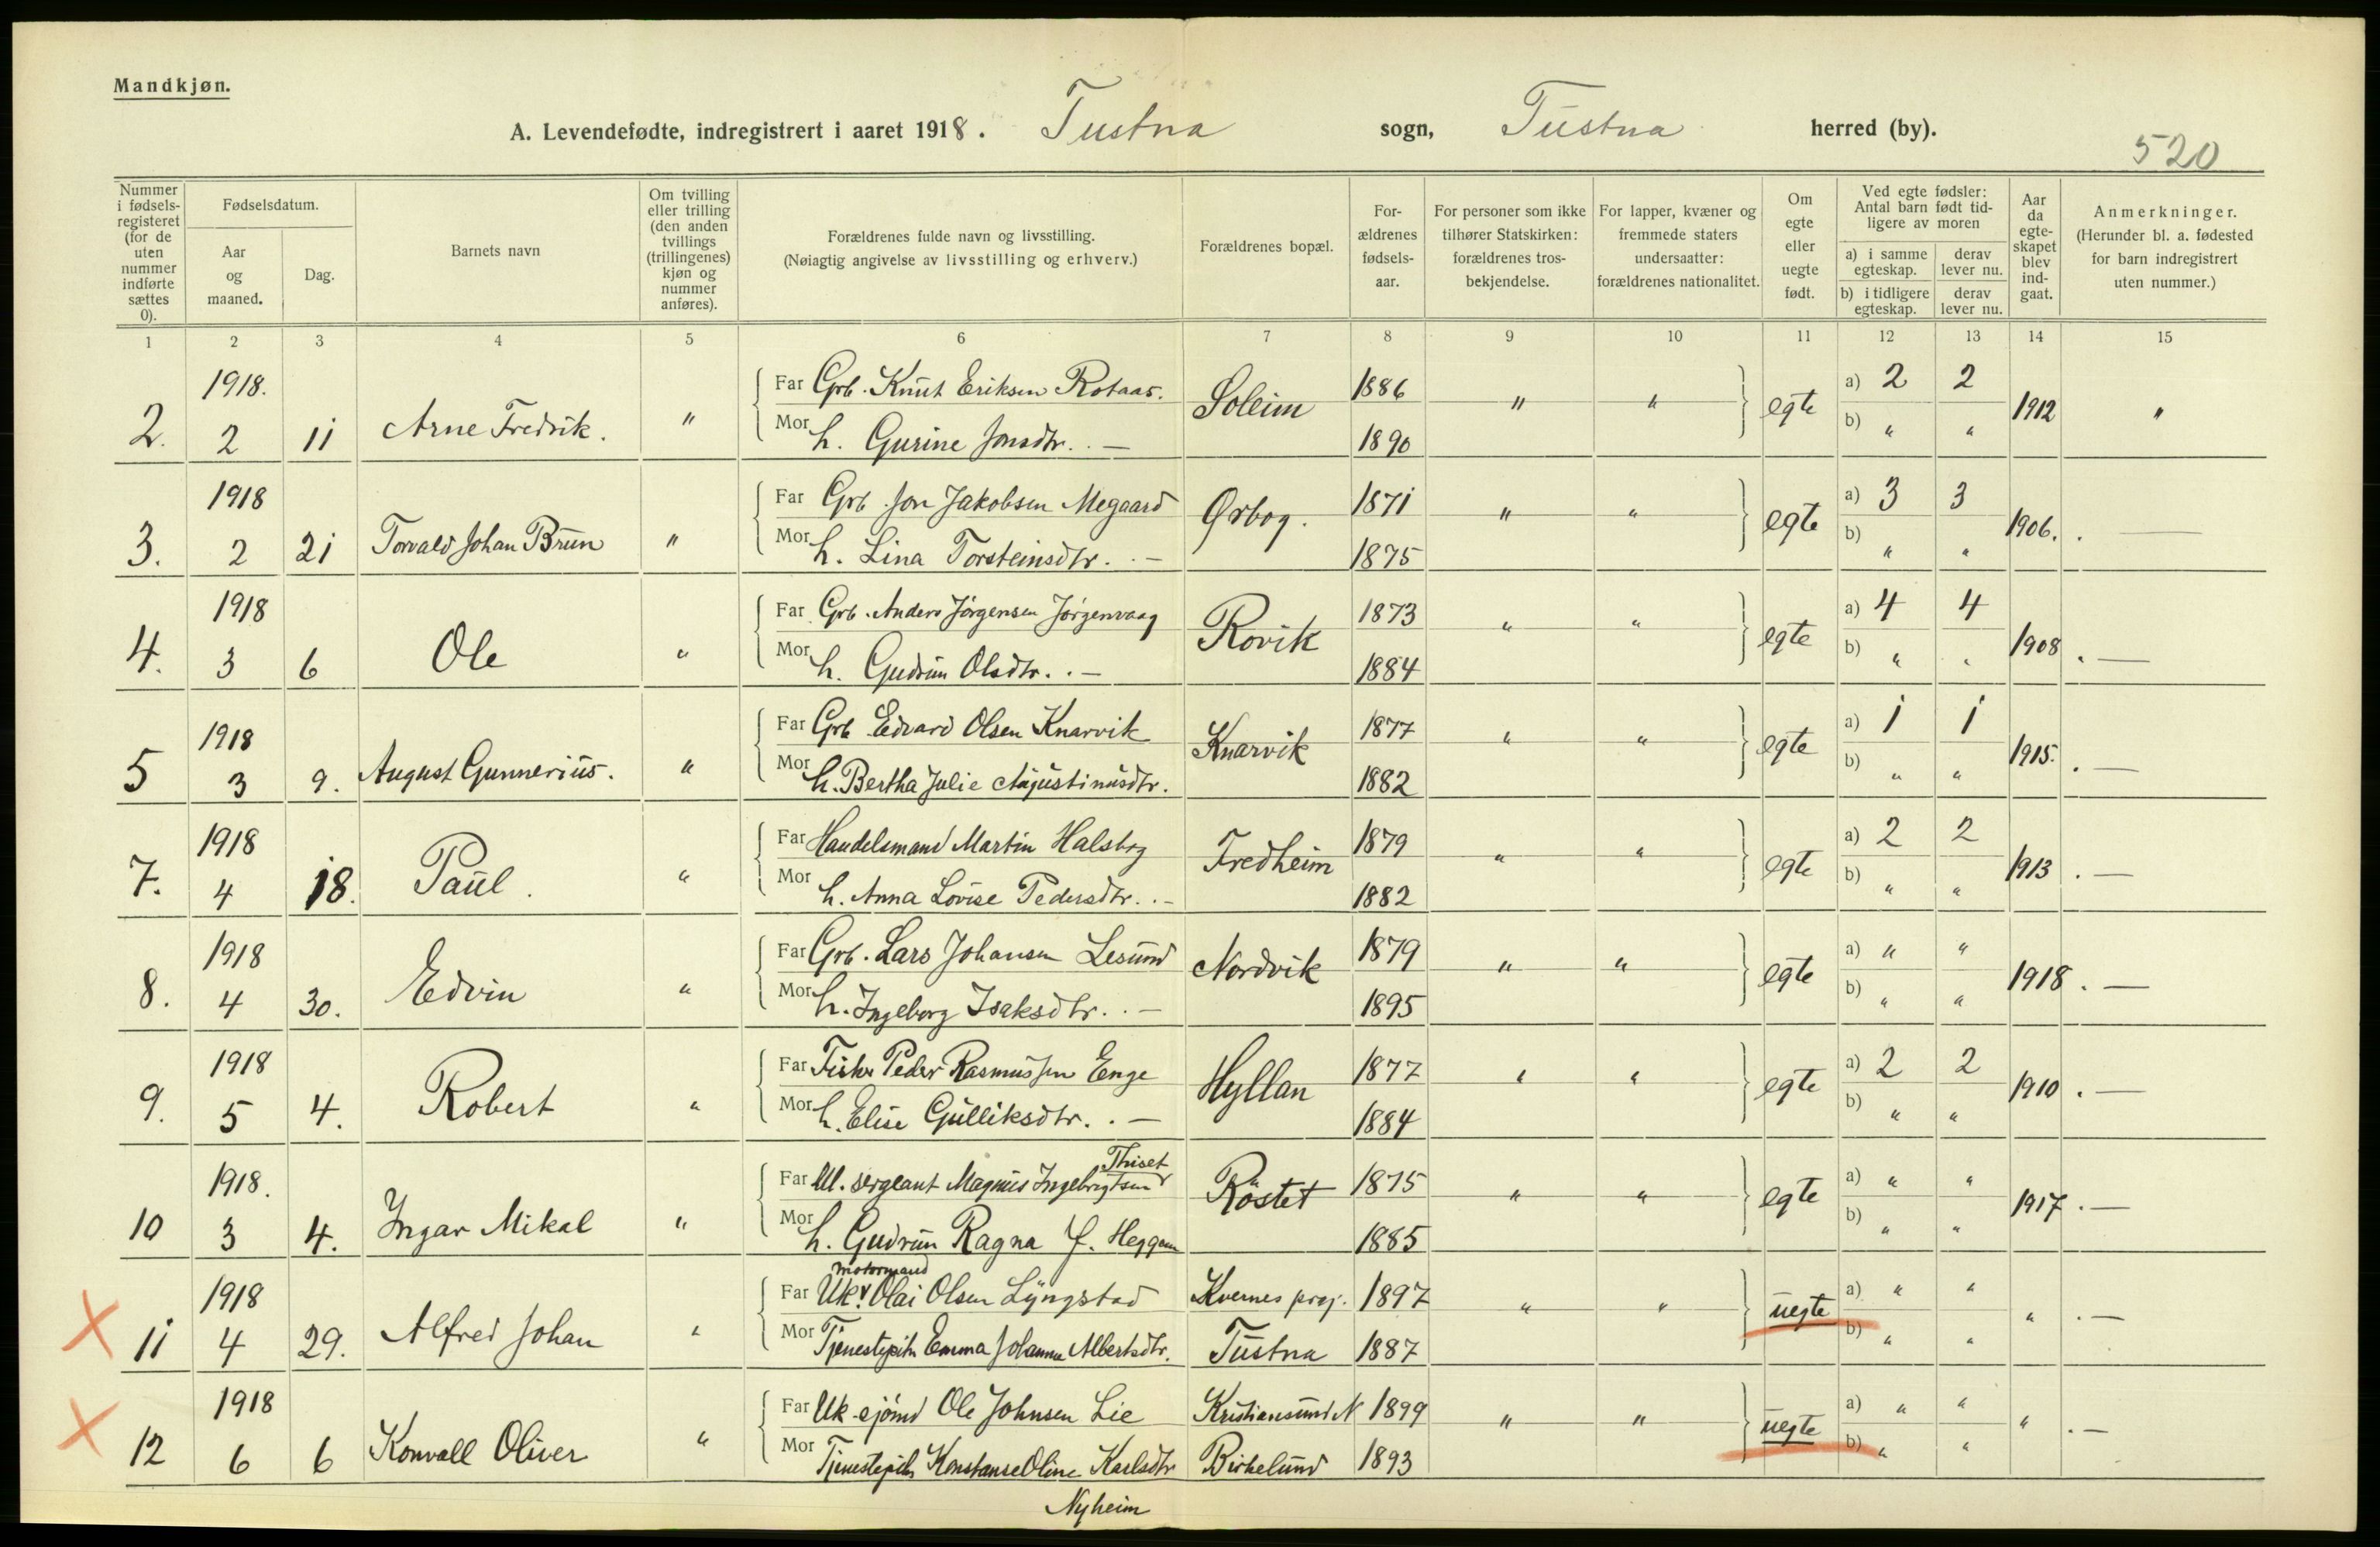 Mandkjøn.
A. Levendefødte, indregistrert i aaret 1918. Tustna sogn, Tustna herred (by).
520
Nummer i fødselsregisteret (for de uten nummer indførte sættes 0).
Fødselsdatum.
Aar og maaned.
Dag.
Barnets navn
Om tvilling eller trilling (den anden tvillings (trillingenes) kjøn og nummer anføres).
Forældrenes fulde navn og livsstilling.
(Nøiagtig angivelse av livsstilling og erhverv.)
Forældrenes bopæl.
Forældrenes fødselsaar.
For personer som ikke tilhører Statskirken: forældrenes trosbekjendelse.
For lapper, kvæner og fremmede staters undersaatter: forældrenes nationalitet.
Om egte eller uegte født.
Ved egte fødsler: Antal barn født tidligere av moren
a) i samme egteskap.
derav lever nu.
b) i tidligere egteskap.
derav lever nu.
Aar da egteskapet blev indgaat.
Anmerkninger.
(Herunder bl. a. fødested for barn indregistrert uten nummer.)
1 2 3 4 5 6 7 8 9 10 11 12 13 14 15
1918. Far Grb. Knut Eriksen Rotaas. Soleim 1886 " " egte a) 2 2 1912 "
2. 2 11 Arne Fredrik. " Mor h. Gurine Jonsdtr. . — 1890 b) " "
1918 Far Grb Jon Jakobsen Megaard Ørbog. 1871 " " egte a) 3 3 1906. . —
3. 2 21 Torvald Johan Brun " Mor h. Lina Torsteinsdtr. . — 1875 b) " "
1918 Far Grb. Anders Jørgensen Jørgenvaag Rovik 1873 " " egte a) 4 4 1908 . —
4. 3 6 Ole " Mor h. Gudrun Olsdtr. . — 1884 b) " "
1918 Far Grb Edvard Olsen Knarvik Knarvik 1877 " " egte a) 1 1 1915. . —
5 3 9. August Gunnerius. " Mor h. Bertha Julie Augustinusdtr. 1882 b) " "
1918 Far Handelsmand Martin Halsbog Fredheim 1879 " " egte a) 2 2 1913 . —
7. 4 18. Paul. " Mor h. Anna Lovise Pedersdtr. . - 1882 b) " "
1918 Far Grb. Lars Johansen Lesund Nordvik 1879 " " egte a) " " 1918 . —
8. 4 30. Edvin " Mor h. Ingeborg Isaksdtr. . — 1895 b) " "
1918 Far Fisker Peder Rasmussen Enge Hyllan 1877 " " egte a) 2 2 1910 . —
9. 5 4. Robert " Mor h. Elise Gulliksdtr. . — 1884 b) " "
Thiset
1918. Far U. sergeant Magnus Ingebrigtsen Røstet 1875 " " egte a) " " 1917 . —
10 3 4. Ingar Mikal " Mor h. Gudrun Ragna f. Heggem 1885 b) " "
motormand
1918 Far Uk. Olai Olsen Lyngstad Kvernes prgj. 1897 " " uegte a) " " " . —
11 4 29. Alfred Johan " Mor Tjenestepike Emma Johanna Albertsdtr. Tustna 1887 b) " "
1918 Far Uk sjømd Ole Johnsen Lie Kristiansund N 1899 " " uegte a) " " " . —
12 6 6 Konvall Oliver " Mor Tjenestepike Konstanse Oline Karlsdtr Birkelund 1893 b) " "
Nyheim